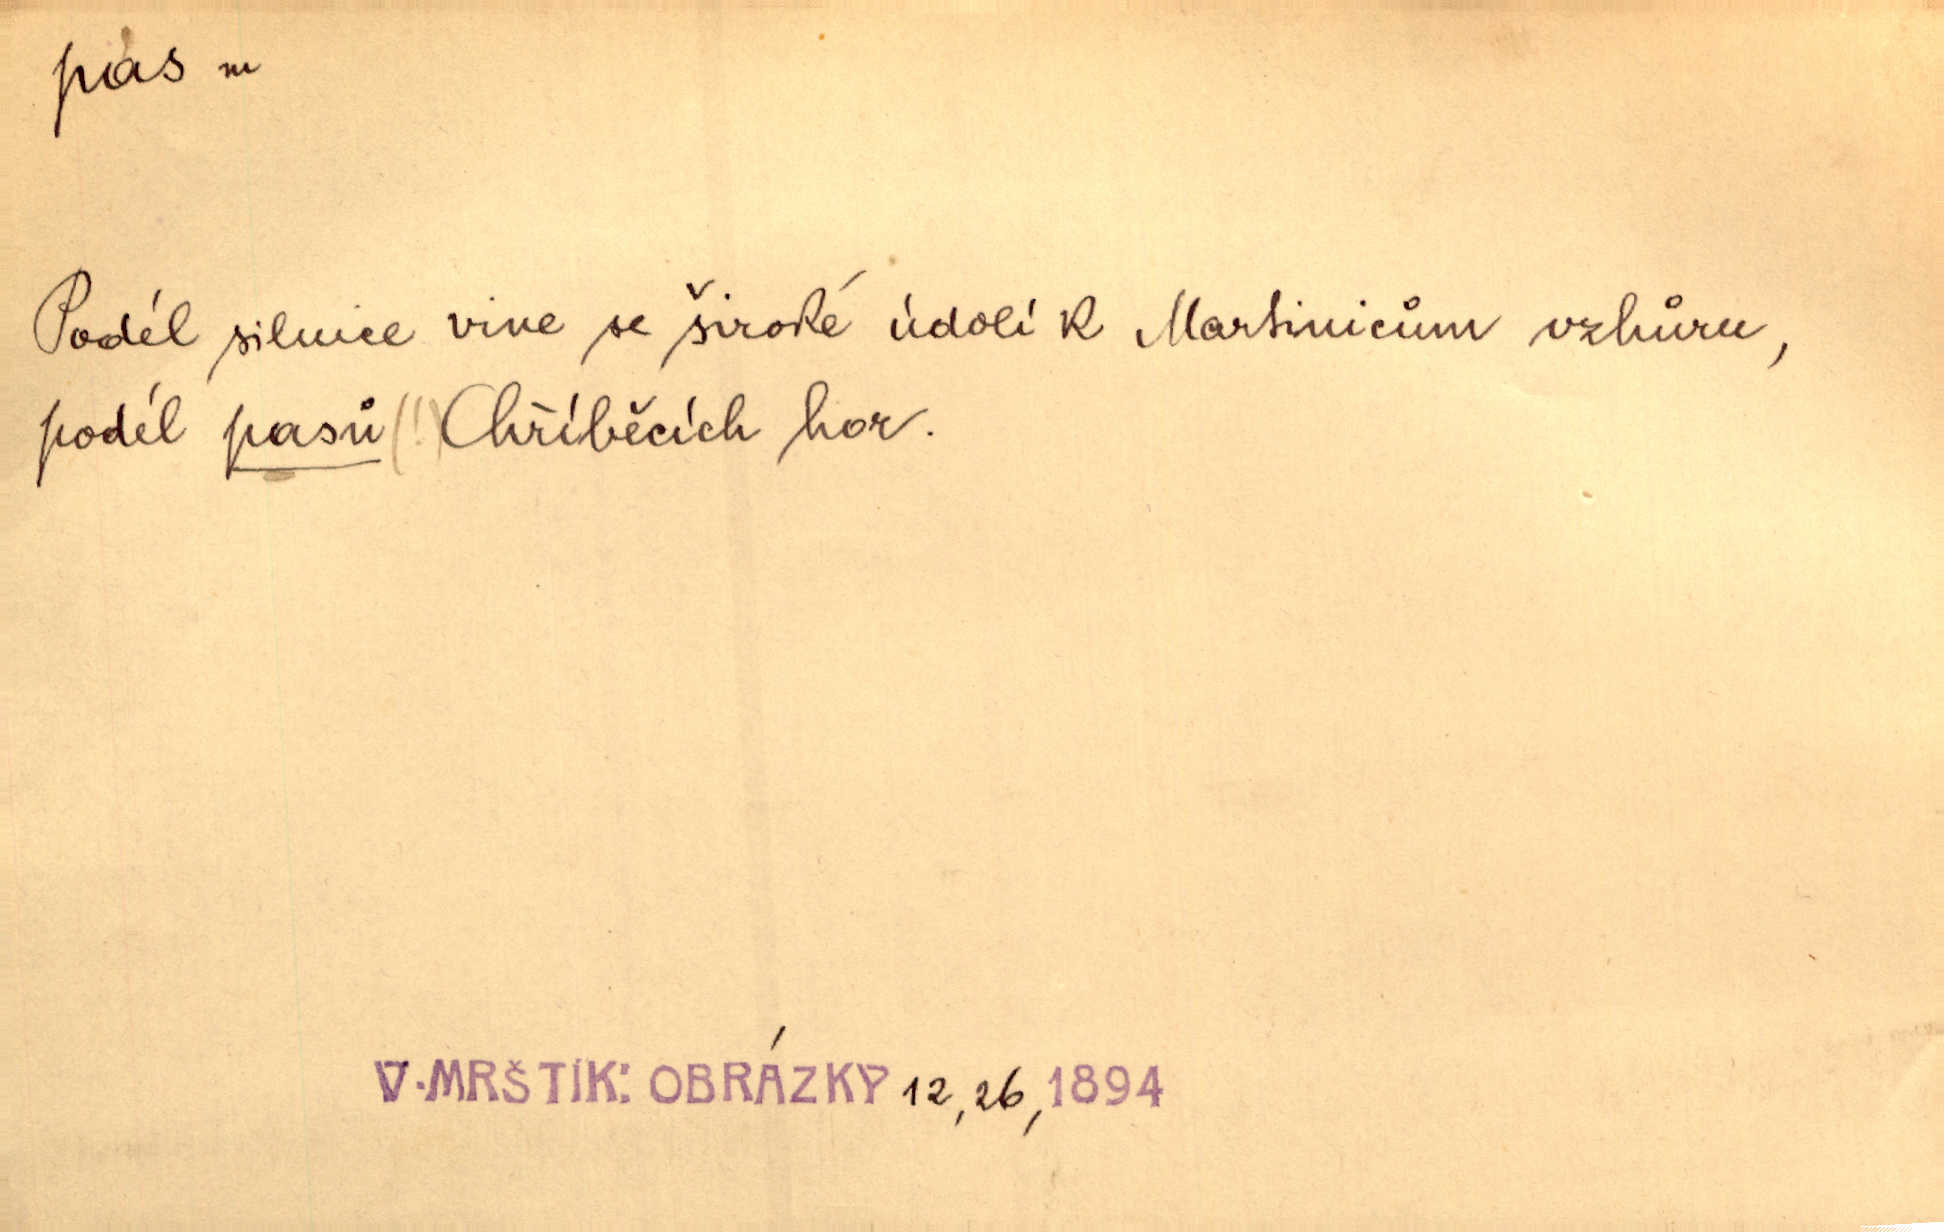 pás m
Podél silnice vine se široké údolí k Martinicům vzhůru,
podél pasů (!) Chříběcích hor.
V. MRŠTÍK: OBRÁZKY 12, 26, 1894